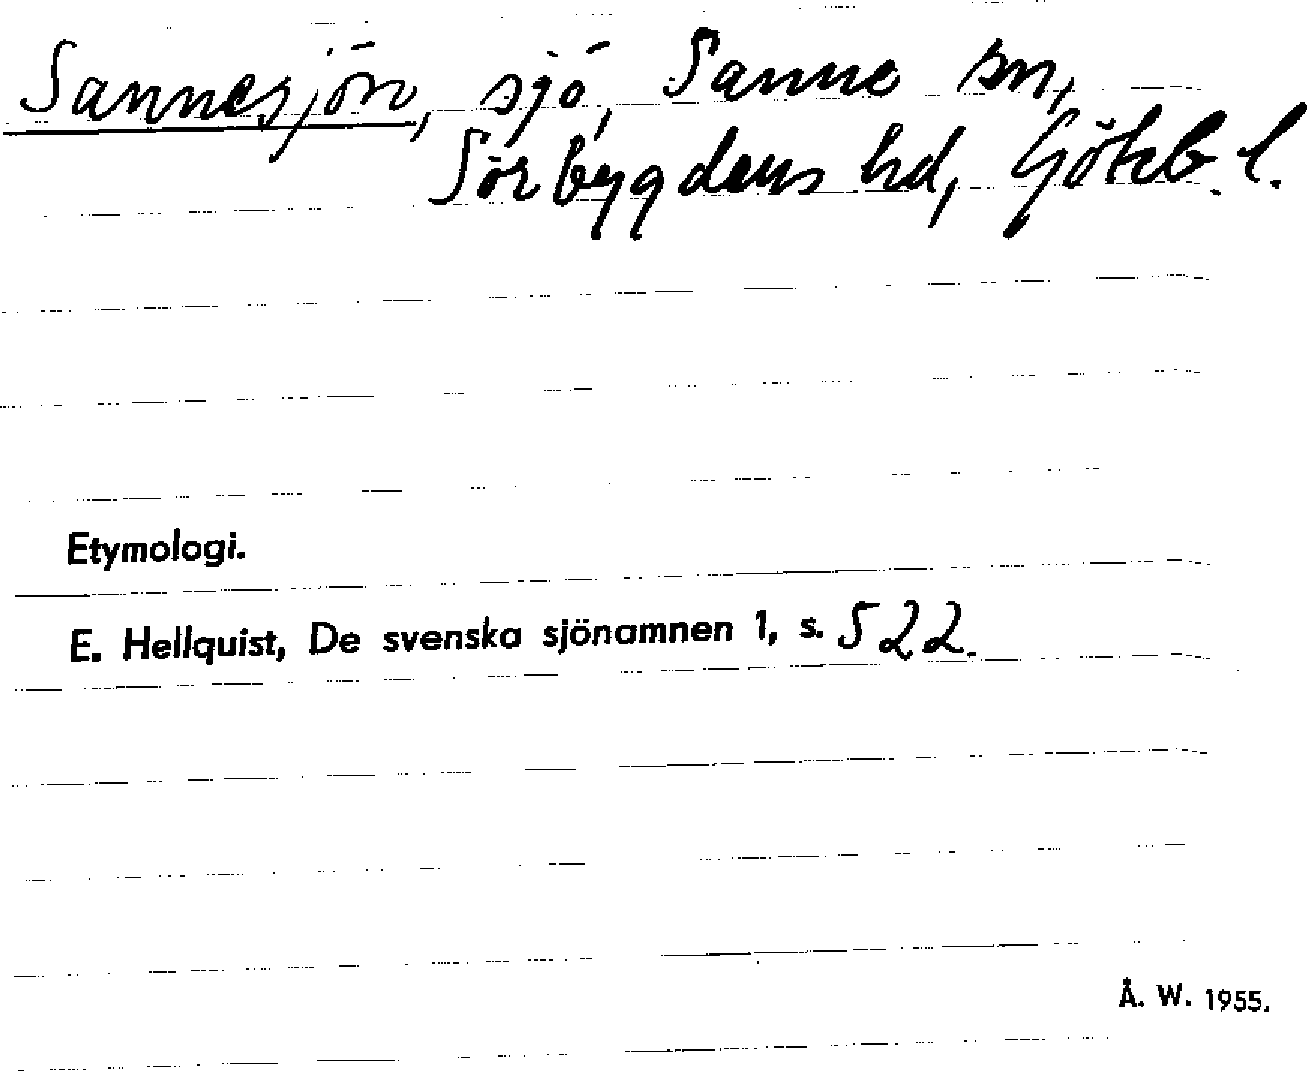 Sannesjön, sjö, Sanne sn,
Sörbygdens hd, Göteb. l.
Etymologi.
E. Hellquist, De svenska sjönamnen 1, s. 522.
Å. W. 1955.